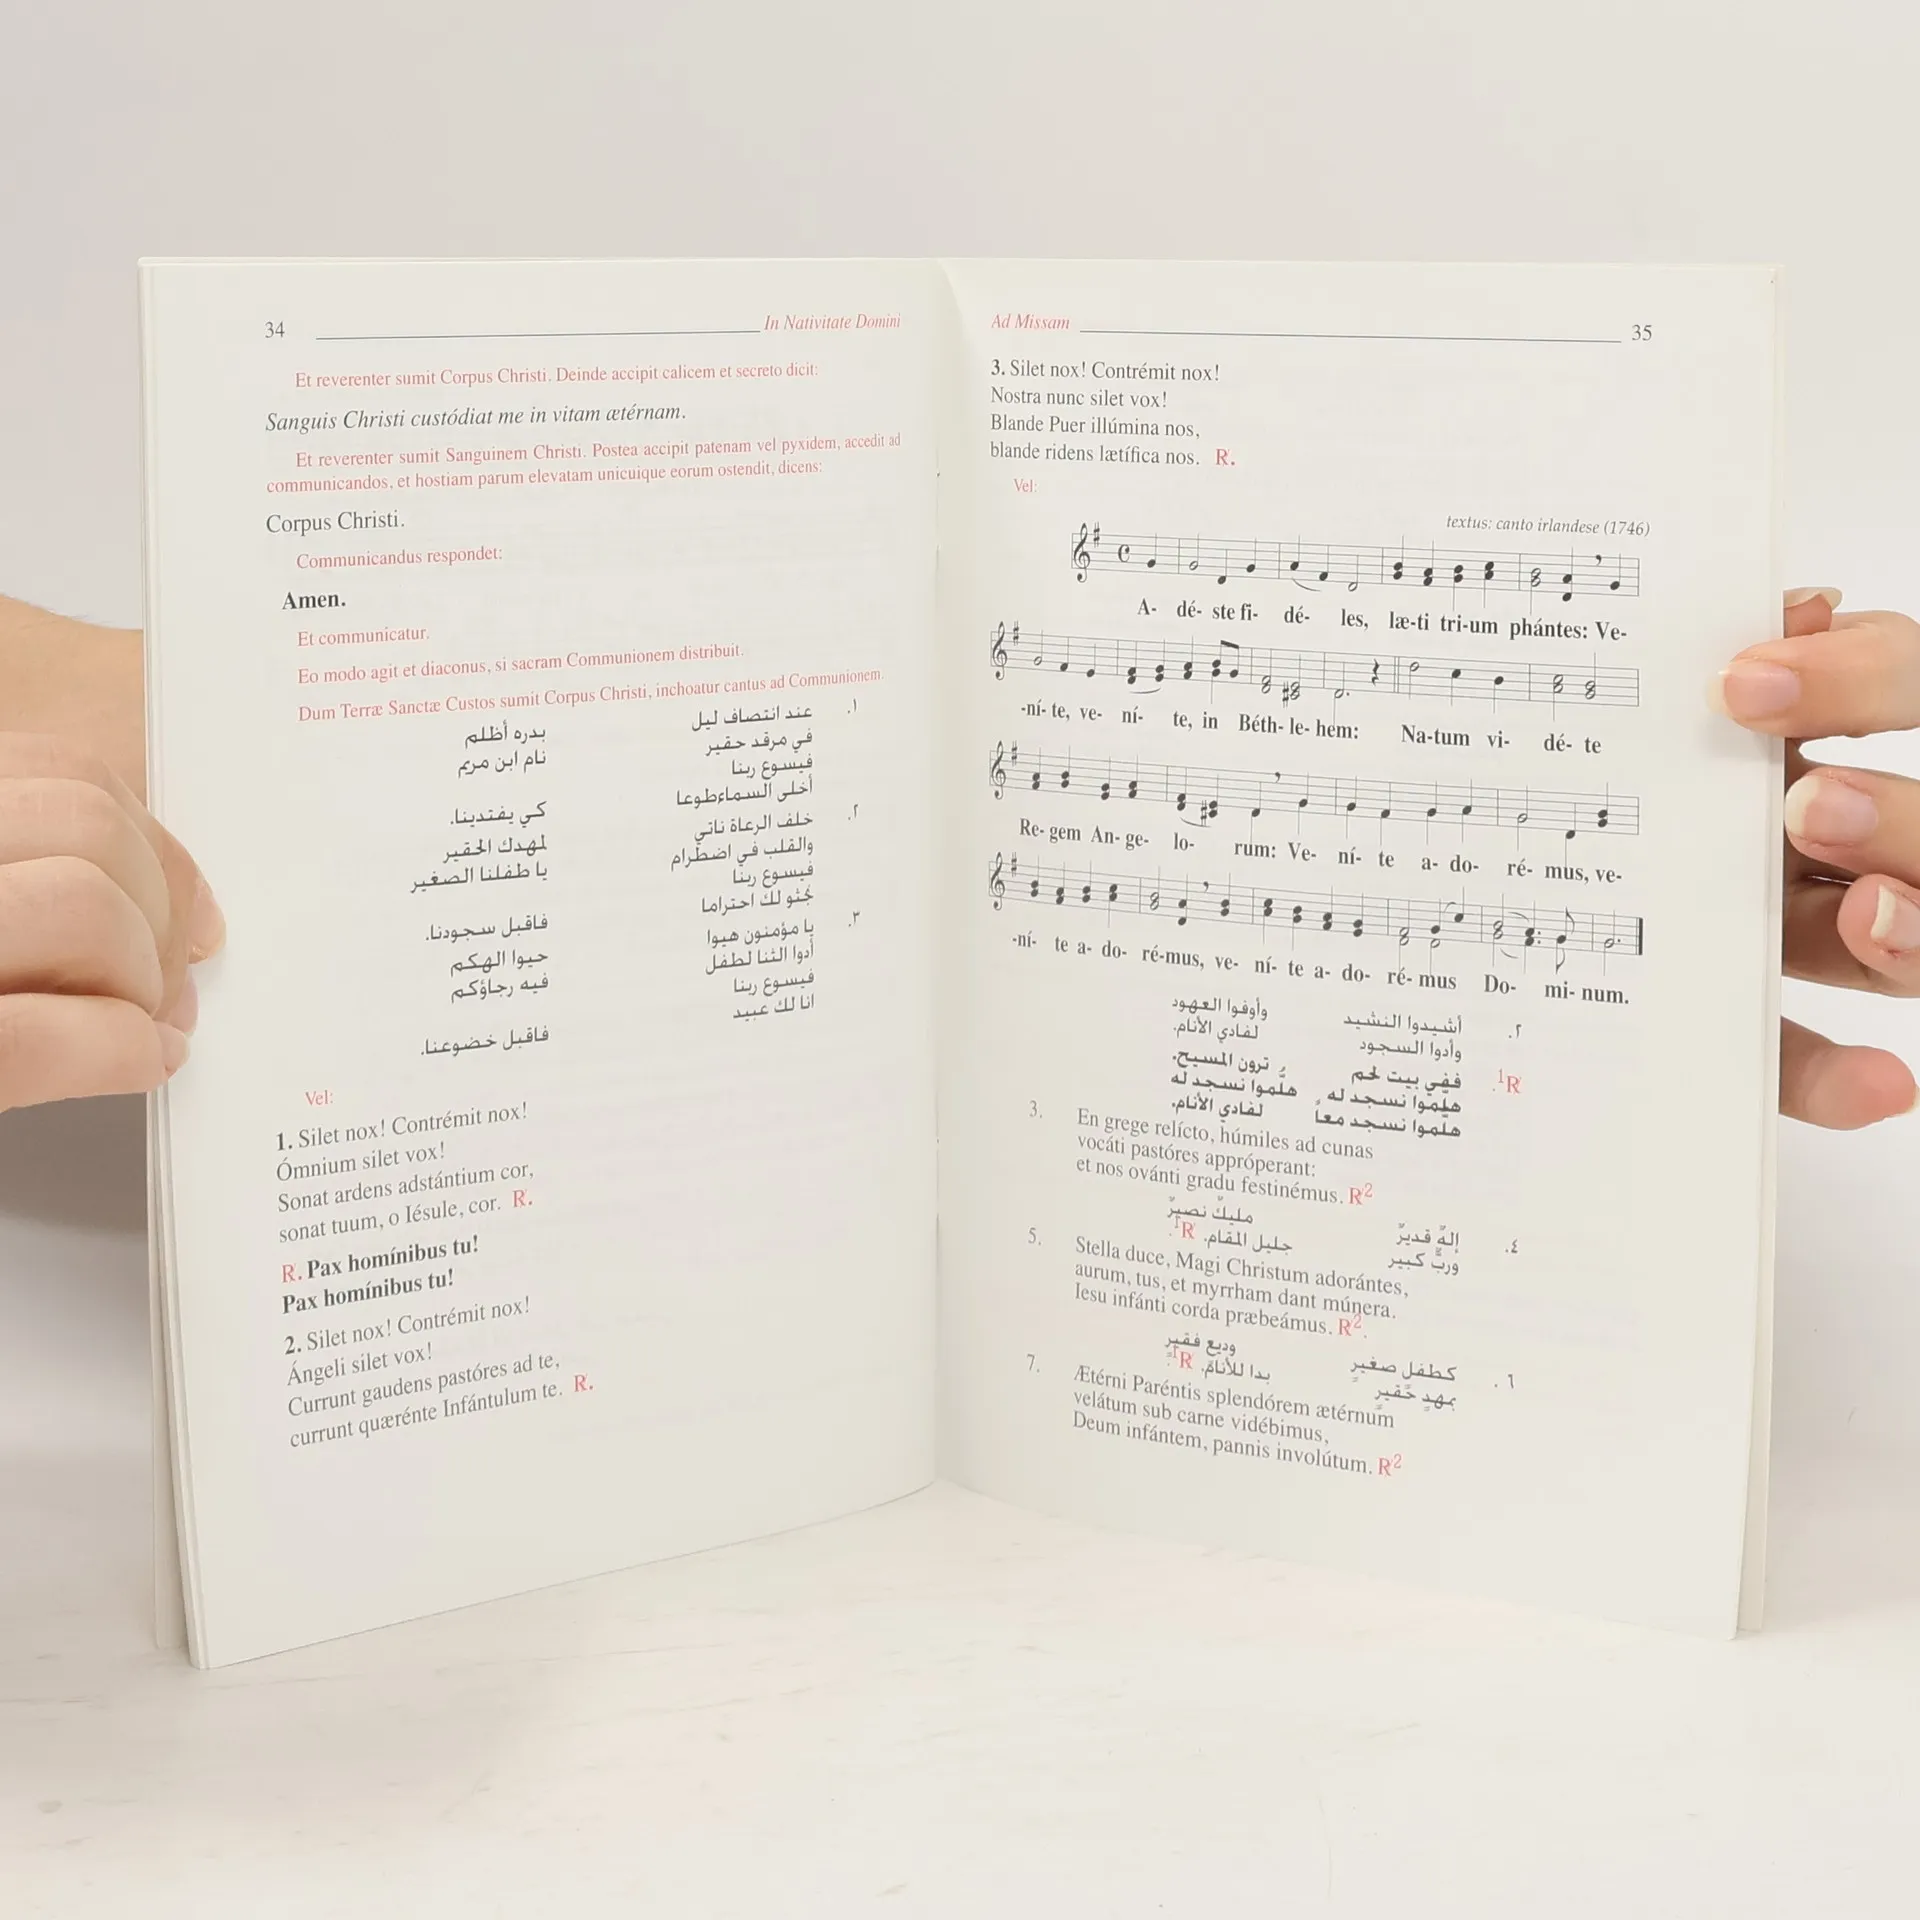 34 In Nativitate Domini
Et reverenter sumit Corpus Christi. Deinde accipit calicem et secreto dicit:
Sanguis Christi custódiat me in vitam ætérnam.
Et reverenter sumit Sanguinem Christi. Postea accipit patenam vel pyxidem, accedit ad
communicandos, et hostiam parum elevatam unicuique eorum ostendit, dicens:
Corpus Christi.
Communicandus respondet:
Amen.
Et communicatur.
Eo modo agit et diaconus, si sacram Communionem distribuit.
Dum Terræ Sanctæ Custos sumit Corpus Christi, inchoatur cantus ad Communionem.
١. عند انتصاف ليل بدره أظلم
في مرقد حقير نام ابن مريم
فيسوع ربنا
أخلى السماءطوعا كي يفتدينا.
٢. خلف الرعاة ناتي لمهدك الحقير
والقلب في اضطرام يا طفلنا الصغير
فيسوع ربنا
نجثو لك احتراما فاقبل سجودنا.
٣. يا مؤمنون هيوا حيوا الهكم
أدوا الثنا لطفل فيه رجاؤكم
فيسوع ربنا
انا لك عبيد فاقبل خضوعنا.
Vel:
1. Silet nox! Contrémit nox!
Ómnium silet vox!
Sonat ardens adstántium cor,
sonat tuum, o Iésule, cor. R.
R. Pax homínibus tu!
Pax homínibus tu!
2. Silet nox! Contrémit nox!
Ángeli silet vox!
Currunt gaudens pastóres ad te,
currunt quærénte Infántulum te. R.
Ad Missam 35
3. Silet nox! Contrémit nox!
Nostra nunc silet vox!
Blande Puer illúmina nos,
blande ridens lætífica nos. R.
Vel:
textus: canto irlandese (1746)
A- dé- ste fi- dé- les, læ-ti tri-um phántes: Ve-
-ní- te, ve- ní- te, in Béth- le- hem: Na-tum vi- dé- te
Re- gem An- ge- lo- rum: Ve- ní- te a- do- ré- mus, ve-
-ní- te a- do- ré-mus, ve- ní- te a- do- ré- mus Do- mi- num.
٢. أشيدوا النشيد وأوفوا العهود
وأدوا السجود لفادي الأنام.
R¹. ففي بيت لحم ترون المسيح.
هلّموا نسجد له هلّموا نسجد له
هلّموا نسجد معاً لفادي الأنام.
3. En grege relícto, húmiles ad cunas
vocáti pastóres appróperant:
et nos ovánti gradu festinémus. R²
٤. إلهٌ قديرٌ مليكٌ نصيرٌ
وربٌّ كبير جليل المقام. R¹.
5. Stella duce, Magi Christum adorántes,
aurum, tus, et myrrham dant múnera.
Iesu infánti corda præbeámus. R².
٦. كطفل صغيرٍ وديع فقيرٍ
بمهدٍ حقيرٍ بدا للأنام. R¹.
7. Ætérni Paréntis splendórem ætérnum
velátum sub carne vidébimus,
Deum infántem, pannis involútum. R²